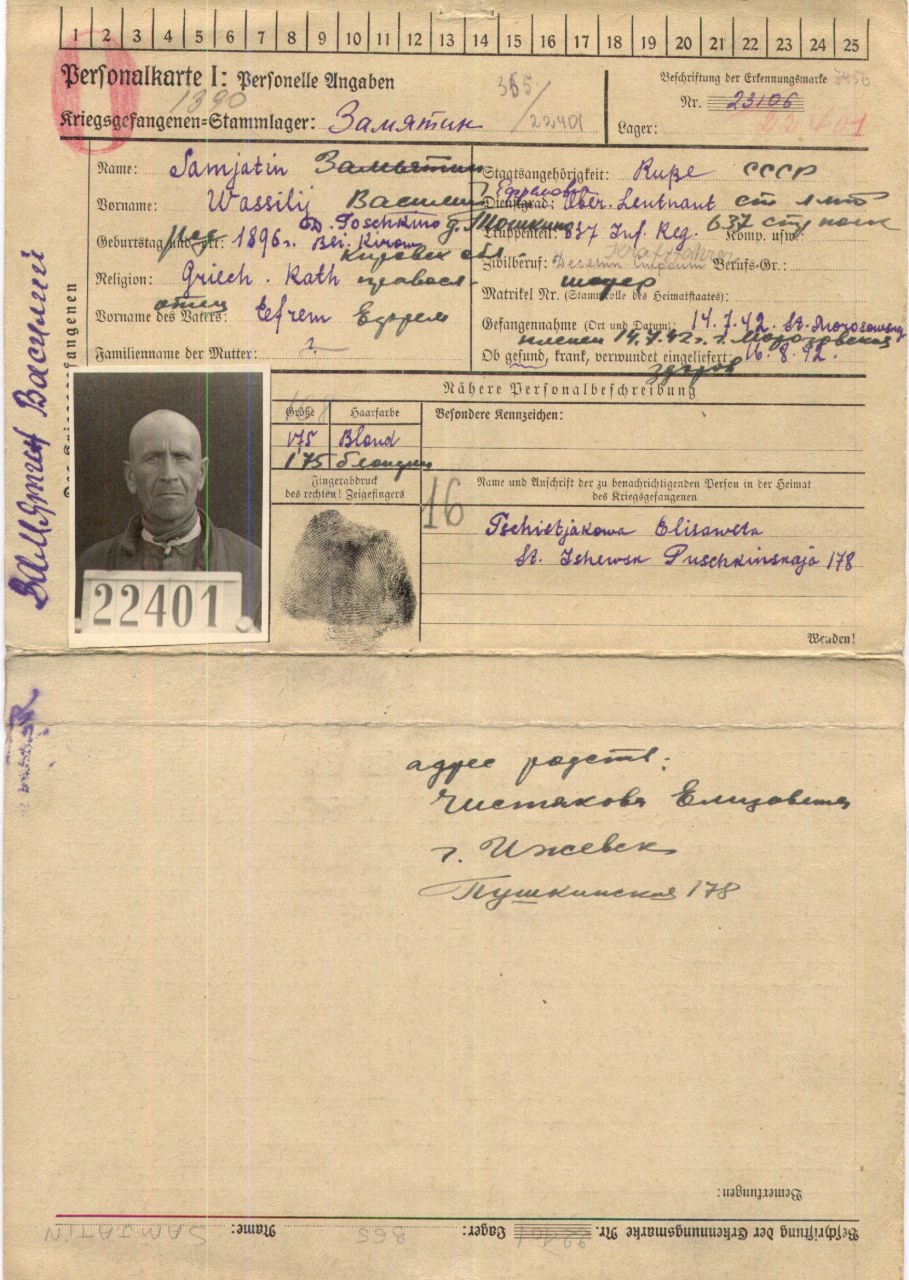 1 2 3 4 5 6 7 8 9 10 11 12 13 14 15 16 17 18 19 20 21 22 23 24 25
Personalkarte I: Personelle Angaben
1390
365/22401
Kriegsgefangenen=Stammlager: Замятин
Beschriftung der Erkennungsmarke
Nr. 23106
Lager: 22401
Name: Samjatin Замьятин
Vorname: Wassilij Василий
Geburtstag und Ort: 1896г. D. Toschkino д. Тошкино
Bei. Kirow Кировск обл.
Religion: Griech. Kath правосл.
Vorname des Vaters: Efrem Ефрем
отец
Familienname der Mutter: ?
Staatsangehörigkeit: Ruße СССР
Dienstgrad: Ober. Leutnant ст л-т
Truppenteil: 637 Inf. Reg. Komp. usw.: 637 стр полк
Zivilberuf: Kraftfahrer Berufs-Gr.:
шофер
Matrikel Nr. (Stammrolle des Heimatstaates):
Gefangennahme (Ort und Datum): 14.7.42. St. Morosowskaj
пленен 14.7.42г. г. Морозовская
Ob gesund, krank, verwundet eingeliefert: 16.8.42.
здоров
Замятин Василий
Des Kriegsgefangenen
Nähere Personalbeschreibung
Größe Haarfarbe
175 Blond
175 блондин
Besondere Kennzeichen:
Fingerabdruck
des rechten! Zeigefingers
16
Name und Anschrift der zu benachrichtigenden Person in der Heimat
des Kriegsgefangenen
Tschistjakowa Elisaweta
St. Ishewsk Puschkinskaja 178
22401
Wenden!
адрес родств:
Чистякова Елизавета
г. Ижевск
Пушкинская 178
Bemerkungen:
Beschriftung der Erkennungsmarke Nr. 22401 Lager: 365 Name: SAMJATIN